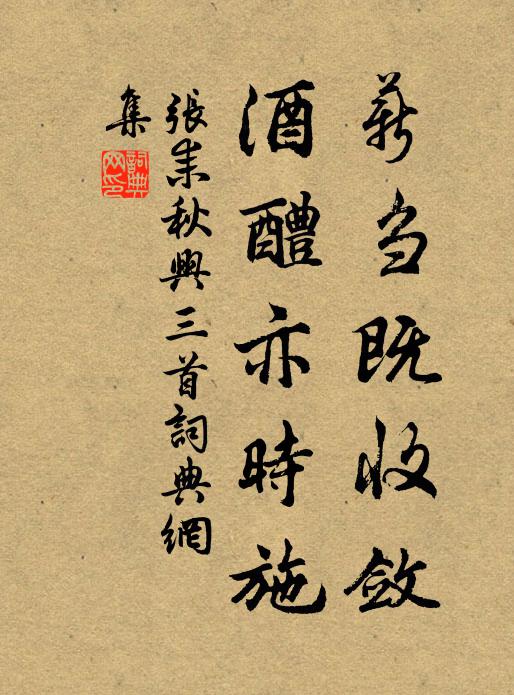 薪刍既收敛
酒醴亦時施
張耒秋興三首詞典網
集
詞典網印